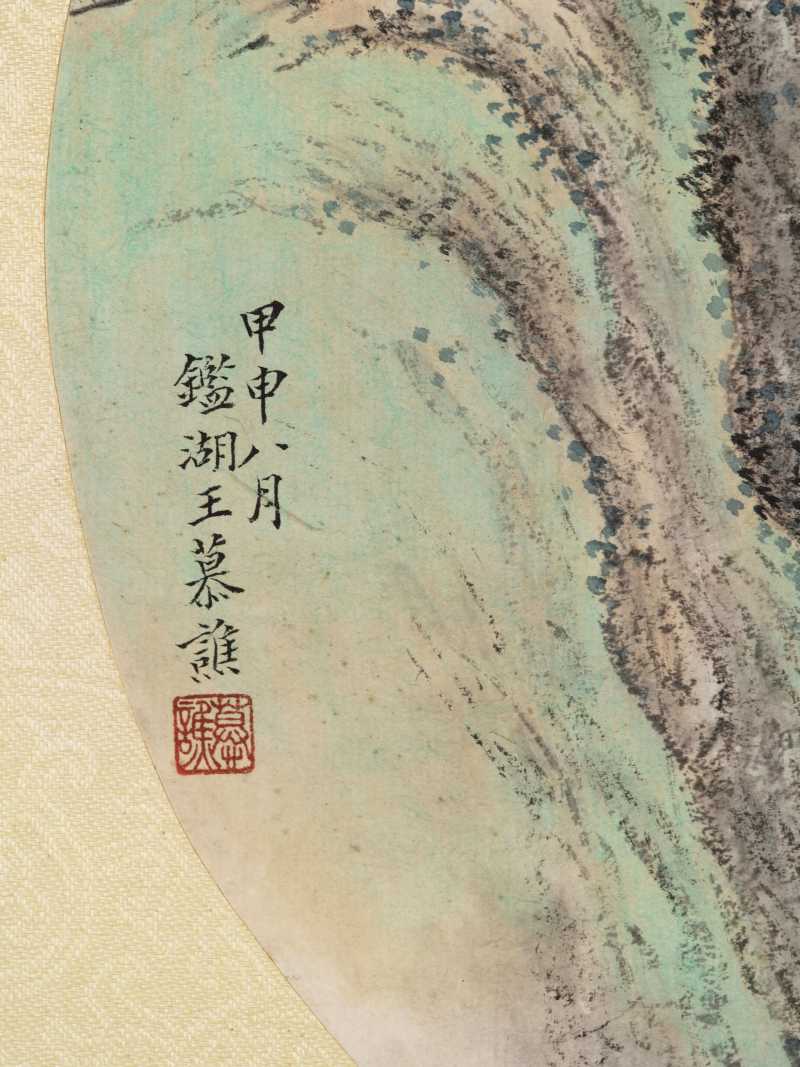 甲申八月
鑑湖王慕譙
慕譙